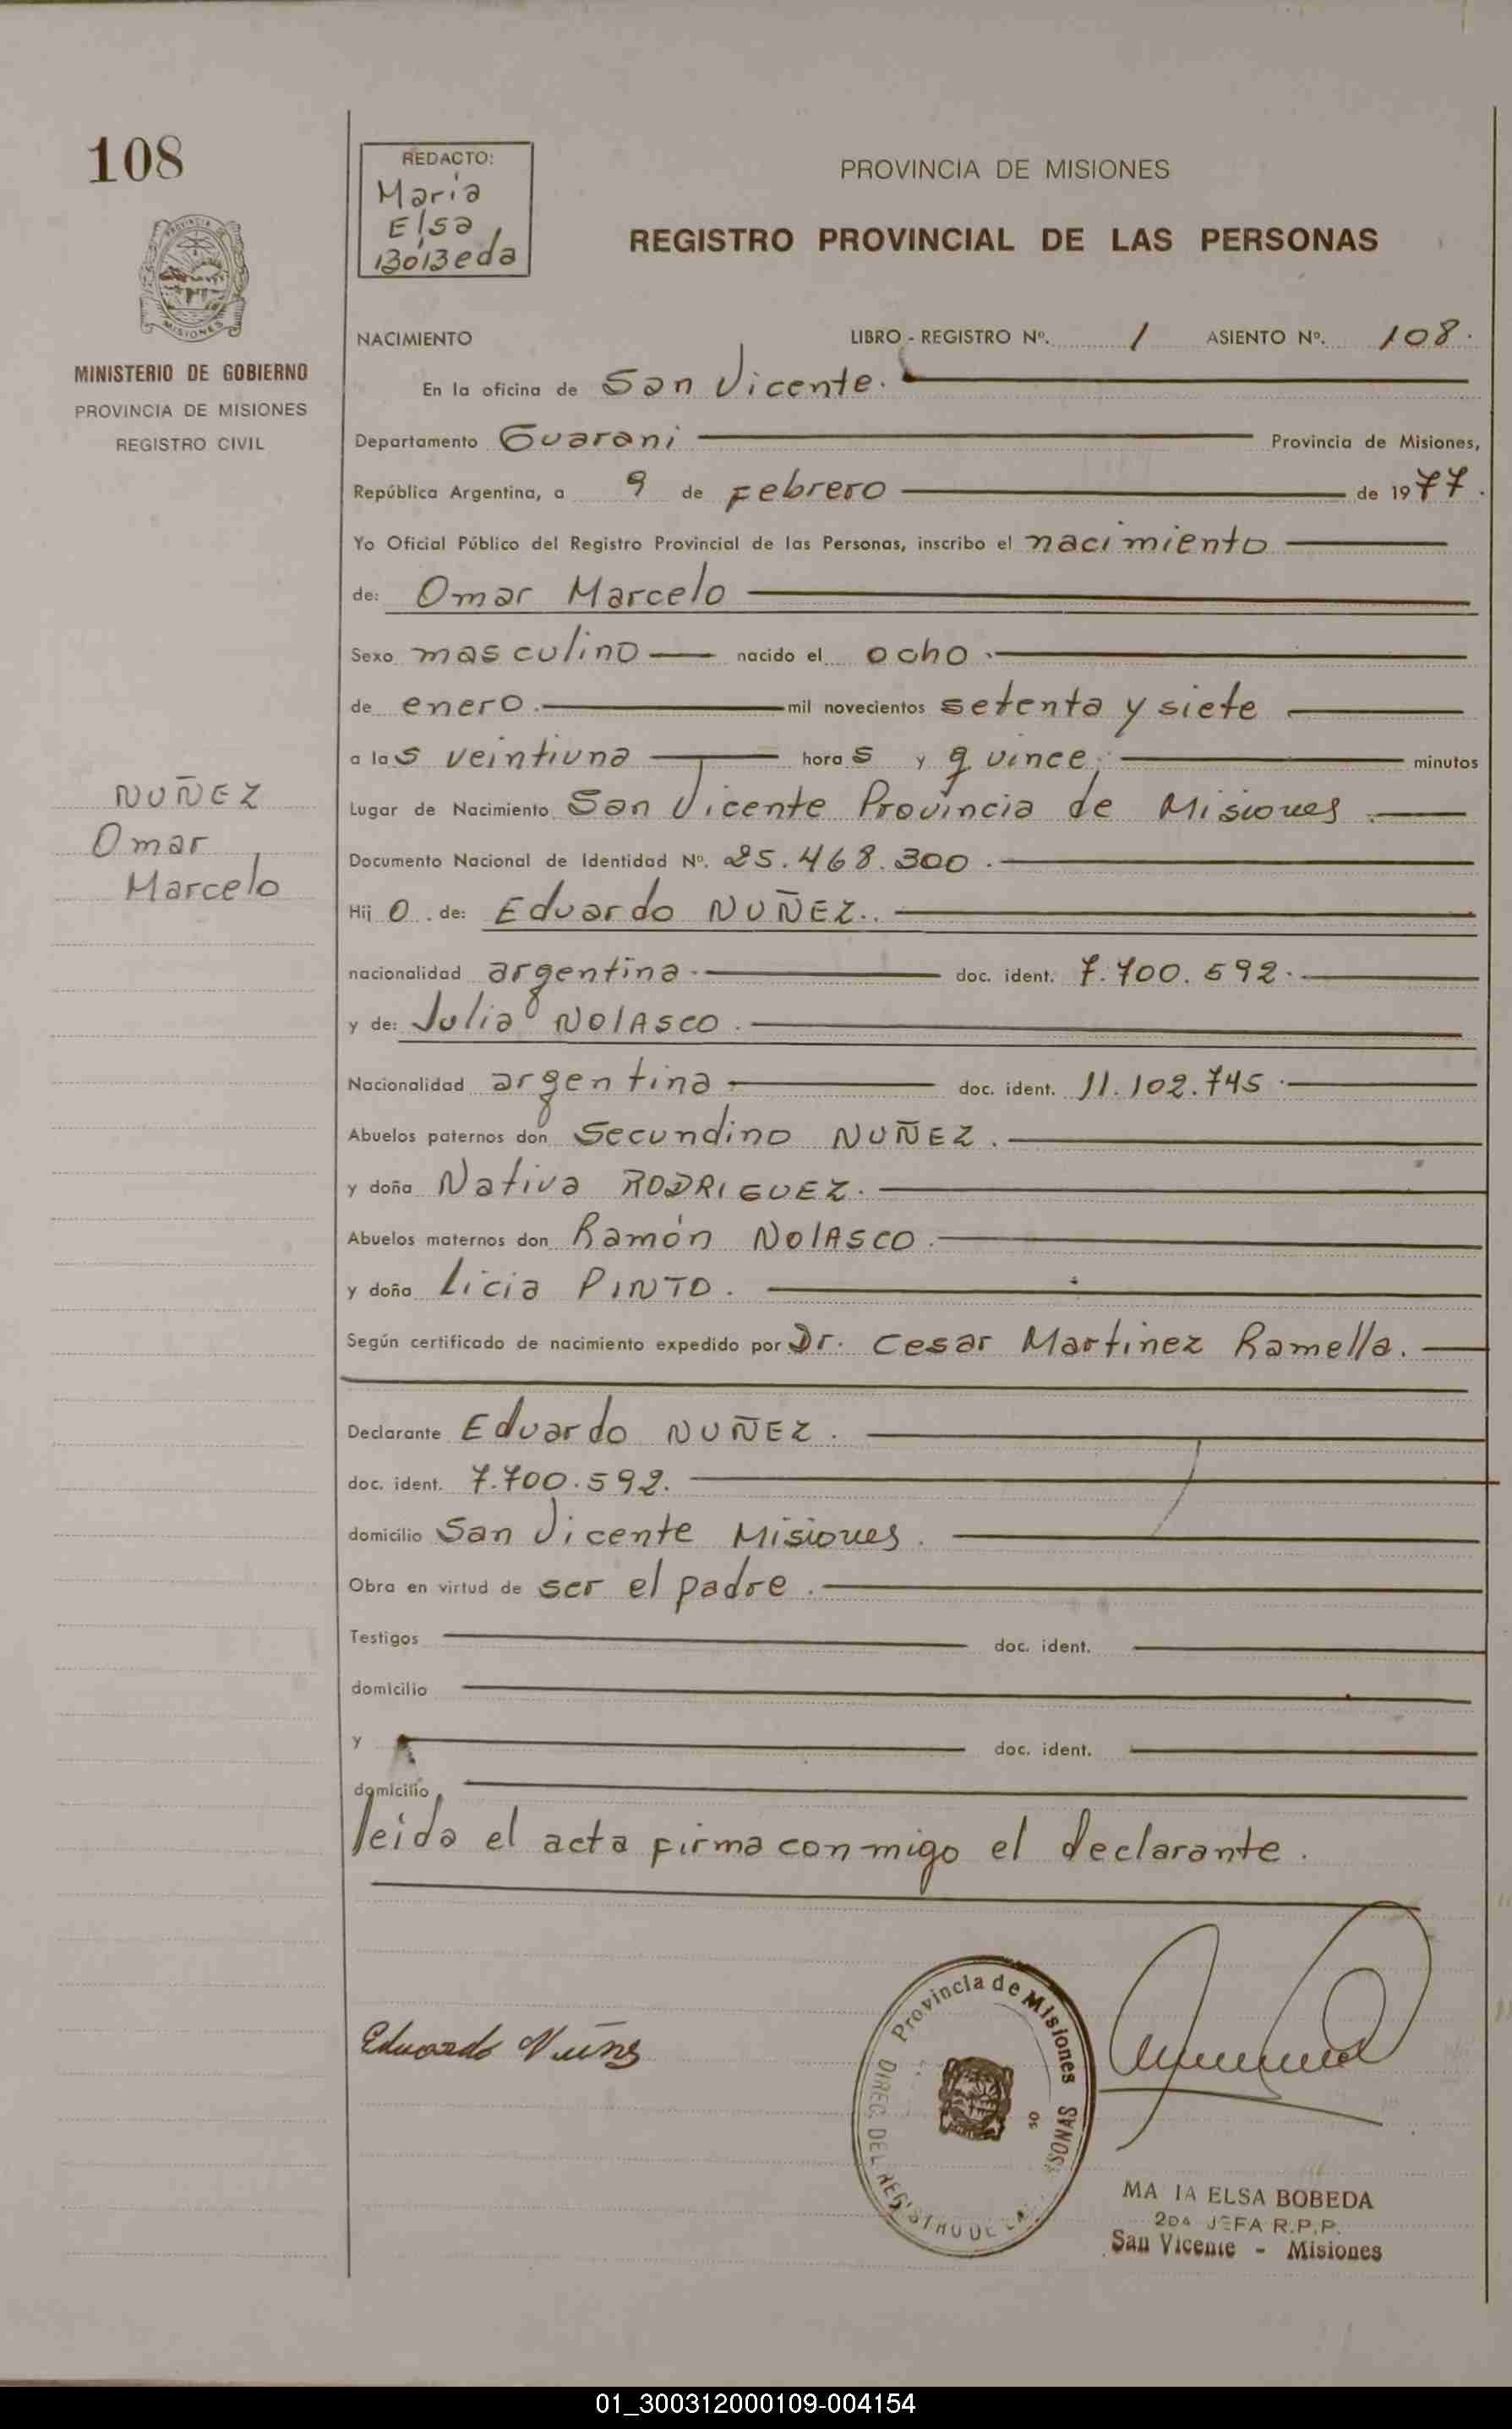 108
REDACTO:
Maria
Elsa
BóBeda
PROVINCIA DE MISIONES
REGISTRO PROVINCIAL DE LAS PERSONAS
MINISTERIO DE GOBIERNO
PROVINCIA DE MISIONES
REGISTRO CIVIL
NACIMIENTO LIBRO - REGISTRO Nº. 1 ASIENTO Nº. 108.
En la oficina de San Vicente.
Departamento Guarani Provincia de Misiones,
República Argentina, a 9 de Febrero de 1977.
Yo Oficial Público del Registro Provincial de las Personas, inscribo el nacimiento
de: Omar Marcelo
Sexo masculino nacido el ocho
de enero. mil novecientos setenta y siete
a las veintiuna horas y quince. minutos
Lugar de Nacimiento San Vicente Provincia de Misiones.
Documento Nacional de Identidad Nº. 25.468.300.
NUÑEZ
Omar
Marcelo
Hijo. de: Eduardo NUÑEZ.
nacionalidad argentina. doc. ident. 7.700.592.
y de: Julia NOlASCO.
Nacionalidad argentina doc. ident. 11.102.745.
Abuelos paternos don Secundino NUÑEZ.
y doña Nativa RODRIGUEZ.
Abuelos maternos don Ramón NOlASCO.
y doña Licia PINTO.
Según certificado de nacimiento expedido por Dr. Cesar Martinez Ramella.
Declarante Eduardo NUÑEZ.
doc. ident. 7.700.592.
domicilio San Vicente Misiones.
Obra en virtud de ser el padre.
Testigos doc. ident.
domicilio
y doc. ident.
domicilio
leida el acta firma conmigo el declarante.
Eduardo Núñez
Provincia de Misiones
DIREC. DEL REGISTRO DE
MA IA ELSA BOBEDA
2DA JEFA R.P.P.
San Vicente - Misiones
01_300312000109-004154